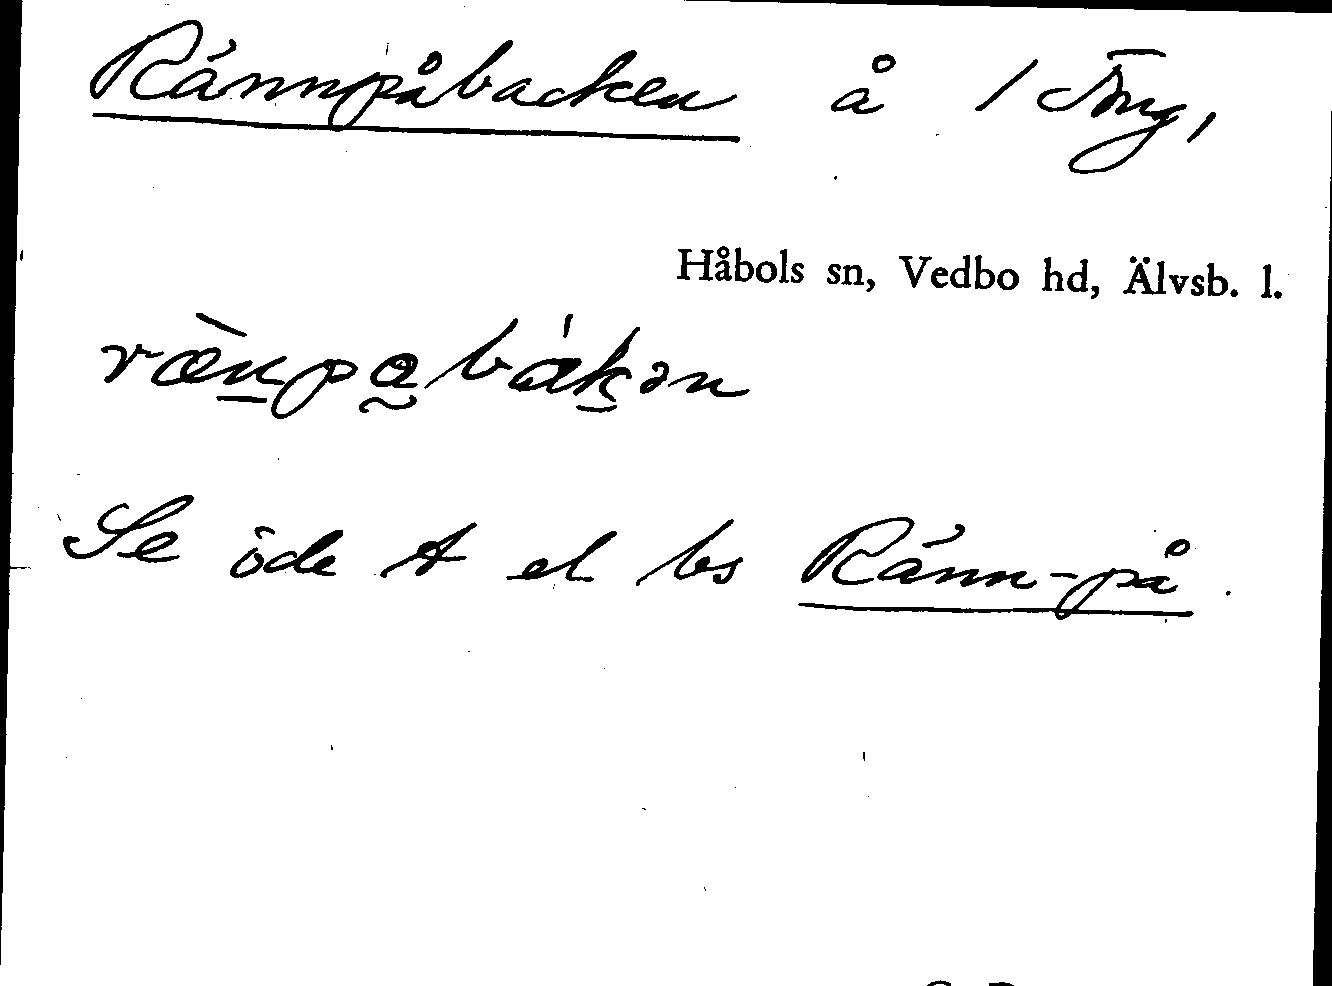 Rännpåbacken å 1 Äng,
Håbols sn, Vedbo hd, Älvsb. l.
ræ̀n̲pa̰bák̲ən
Se öde t el bs Ränn-på.